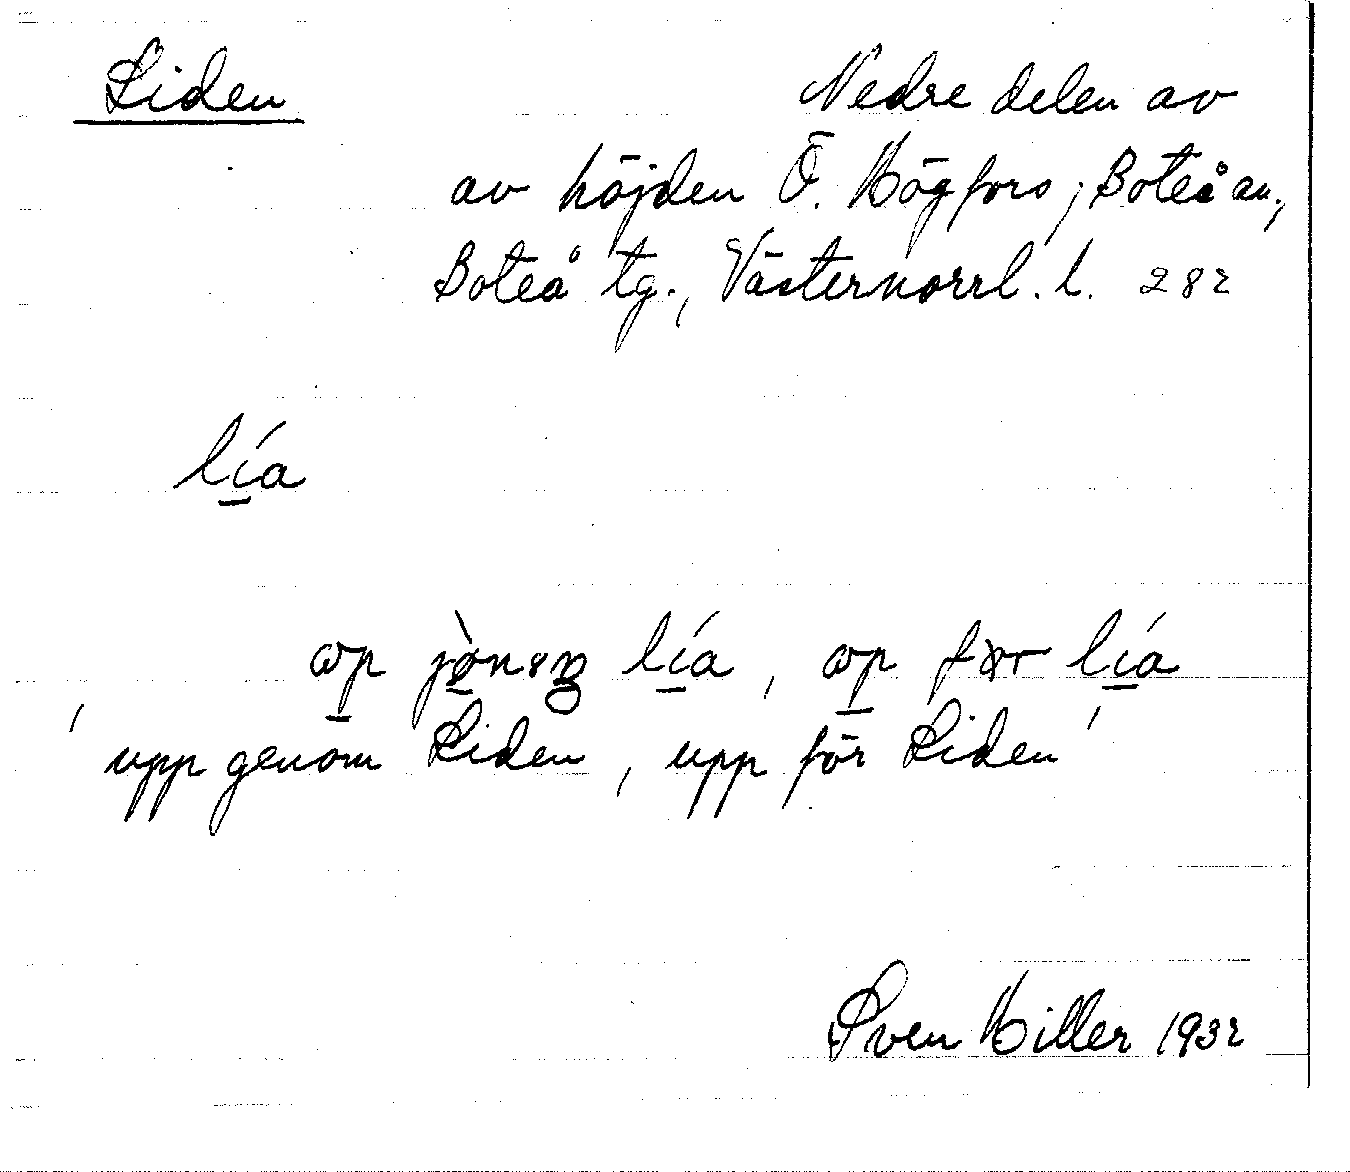 Liden Nedre delen av
av höjden Ö. Högfors, Boteå sn.,
Boteå tg., Västernorrl. l. 282
lía
lía, fɤr lía
'upp genom Liden, upp för Liden'
Sven Hiller 1932